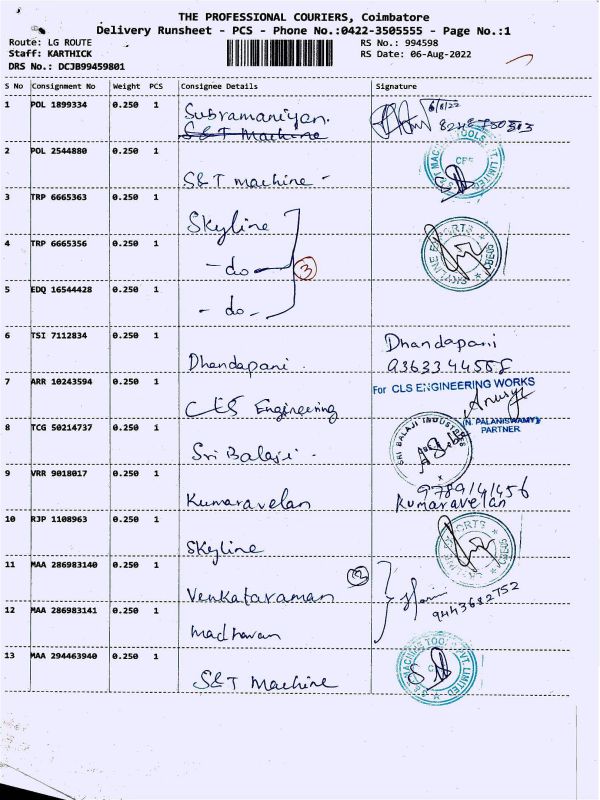 THE PROFESSIONAL COURIERS, Coimbatore
Delivery Runsheet - PCS - Phone No.:0422-3505555 - Page No.:1
Route: LG ROUTE RS No.: 994598
Staff: KARTHICK RS Date: 06-Aug-2022
DRS No.: DCJB99459801
S No Consignment No Weight PCS Consignee Details Signature
1 POL 1899334 0.250 1 Subramaniyan 6/8/22
S&T Machine
2 POL 2544880 0.250 1 S&T machine -
3 TRP 6665363 0.250 1 Skyline
4 TRP 6665356 0.250 1 - do - 3
5 EDQ 16544428 0.250 1 - do -
6 TSI 7112834 0.250 1 Dhandapani Dhandapani
7 ARR 10243594 0.250 1 CLS Engineering For CLS ENGINEERING WORKS
(N. PALANISWAMY)
PARTNER
8 TCG 50214737 0.250 1 Sri Balaji SRI BALAJI INDUSTRIES
9 VRR 9018017 0.250 1 Kumaravelan 9789141456
Kumaravelan
10 RJP 1108963 0.250 1 Skyline
11 MAA 286983140 0.250 1 Venkataraman 2
9443682752
12 MAA 286983141 0.250 1 Madhavan
13 MAA 294463940 0.250 1 S&T Machine